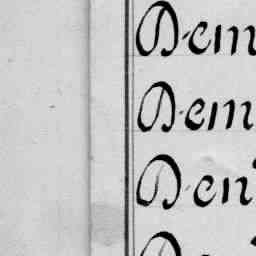 Dem
Dem
Den